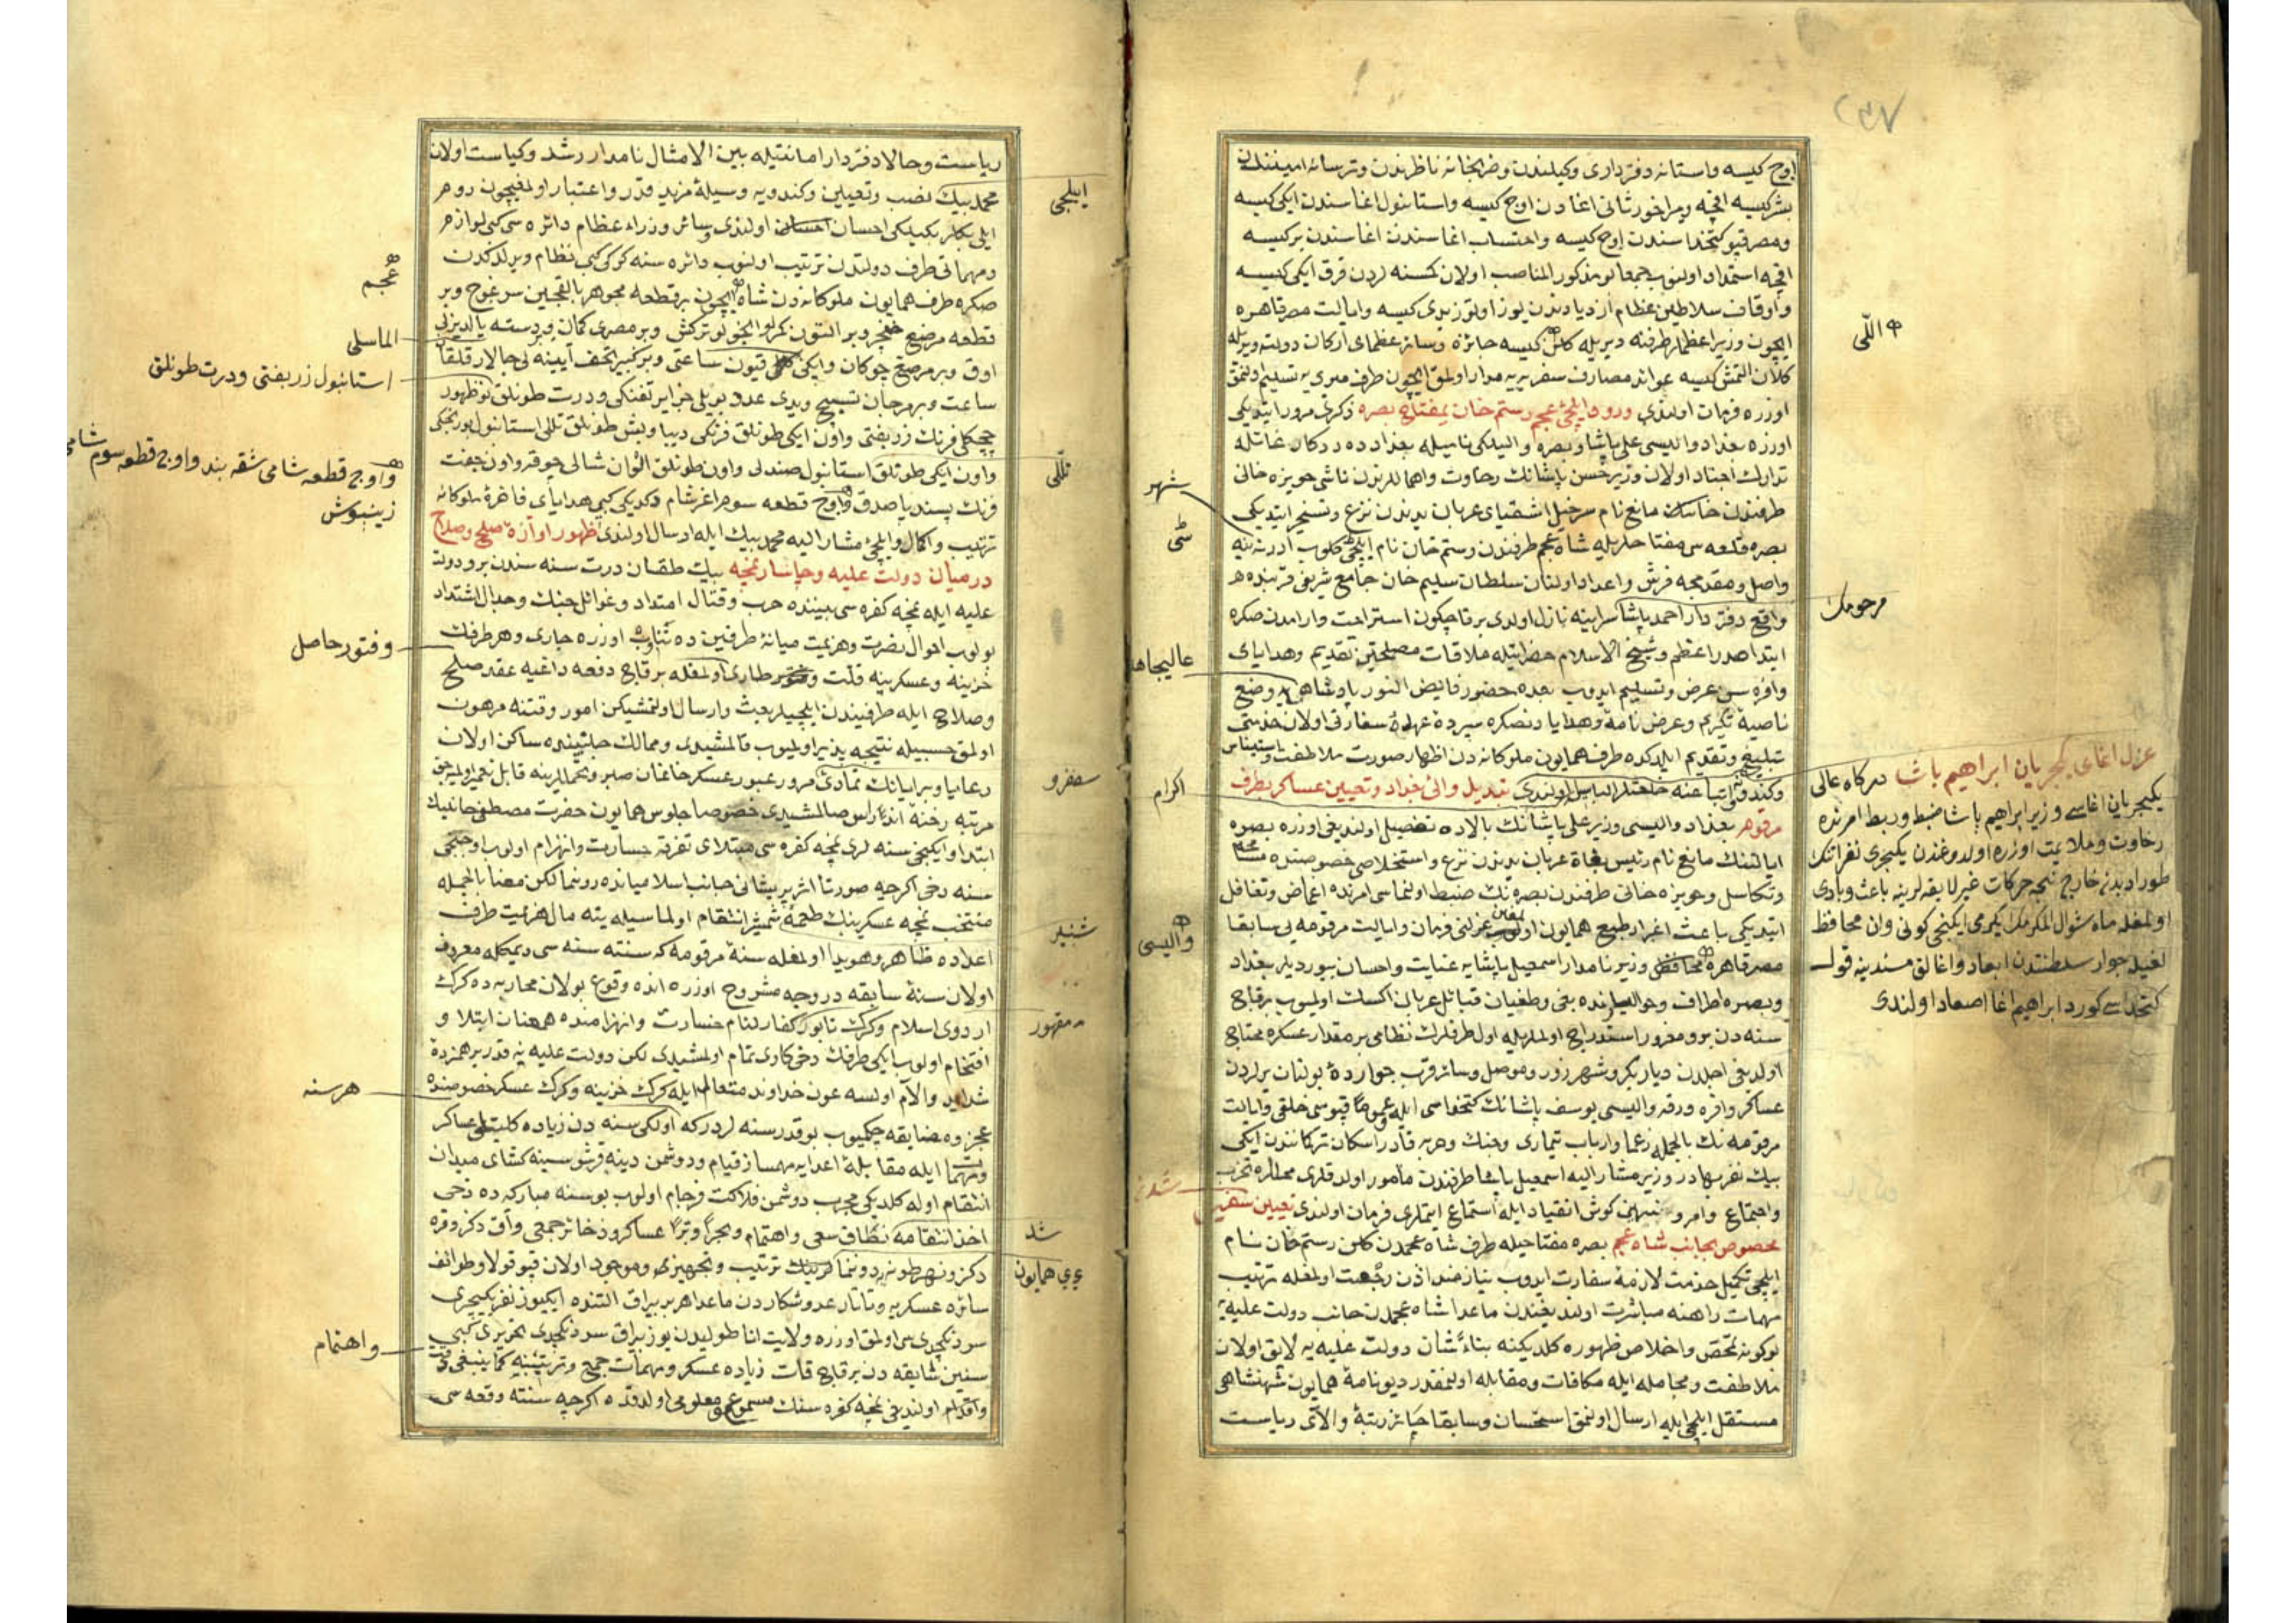 اوچ کیسه واستانه دفترداری وکیلندن وضربخانه ناظرندن وترسانه امینندن
بشر کیسه اقچه ومیراخور ثانی اغادن اوچ کیسه واستانبول اغاسندن ایکی کیسه
ومصر قپو کتخداسندن اوچ کیسه واحتساب اغاسندن اغاسندن بر کیسه
اقچه استمداد اولنوب جمعا بو مذکور المناصب اولان کمسنه لردن قرق ایکی کیسه
واوقاف سلاطین عظام ازدیادندن یوز اوتوز یدی کیسه وایالت مصر قاهره
ایچون وزیر اعظملر طرفنه ویریله کلان کیسه جائزه وسائر عظمای ارکان دولته ویریله
کلان التمش کیسه عوائد مصارف سفریه یه مدار اولمق ایچون طرف میری یه تسلیم اولنمق
اوزره فرمان اولندی ورود ایلچئ عجم رستم خان بمفتاح بصره ذکری مرور ایتدیکی
اوزره بغداد والیسی علی پاشا وبصره والیلکی نامیله بغداد ده درکار غائله
تدارك اجناد اولان وزیر حسن پاشانك رخاوت واهماللرندن ناشی حویزه خانی
طرفندن مانع نام سرخیل اشقیای عربان یدندن نزع وتسخیر ایتدیکی
بصره قلعه سی مفتاحلریله شاه عجم طرفندن رستم خان نام ایلچی کلوب ادرنه یه
واصل ومقدمجه فرش واعداد اولنان سلطان سلیم خان جامع شریفی قربنده
واقع دفتردار احمد پاشا سراینه نازل اولدی برقاچ کون استراحت وارامدن صکره
ابتدا صدر اعظم وشیخ الاسلام حضراتیله ملاقات مصلحتین تقدیم وهدایای
وافره سن عرض وتسلیم ایدوب بعده حضور فایض النور پادشاهی یه وضع
ناصیهٔ تکریم وعرض نامه وهدایا دنصکره سپردهٔ عهدهٔ سفارتی اولان خدمتی
تبلیغ وتقدیم ایلدکده طرف همایون ملوکانه دن اظهار صورت ملاطفت واستیناس
وکندویه واتباعنه خلعتلر الباس اولندی تبدیل والئ بغداد وتعیین عساکر بطرف
مرقوم بغداد والیسی وزیر علی پاشانك بالاده تفصیل اولندیغی اوزره بصره
ایالتنك مانع نام رئیس بغاة عربان یدندن نزع واستخلاصی خصوصنده
وتکاسل وحویزه خانی طرفندن بصره نك ضبط اولنماسی امرنده اغماض وتغافل
ایتدیکی باعث اغبرار طبع همایون اولوب عزلنی فرمان وایالت مرقومه یی سابقا
مصر قاهره محافظی وزیر نامدار اسمعیل پاشایه عنایت واحسان بیوردیلر بغداد
وبصره اطراف وحوالیلرنده بغی وطغیان قبائل عربان اکسك اولمیوب برقاچ
سنه دن برو مغرور استدراج اولملریله اول طرفلرك نظامی بر مقدار عسکره محتاج
اولدیغی اجلدن دیاربکر وشهرزور وموصل وسائر قرب جوارده بولنان یرلردن
عساکر وافره ورقه والیسی یوسف پاشانك کتخداسی ایله عموما قپوسی خلقی وایالت
مرقومه نك بالجمله زعما وارباب تیماری وجنك وحربه قادر اسکان ترکماندن ایکی
بیك نفر بهادر وزیر مشار الیه اسمعیل پاشا طرفندن مأمور اولدقلری محللره
واجتماع وامر ونهینی کوش انقیاد ایله استماع ایتملری فرمان اولندی تعیین سفیر
مخصوص بجانب شاه عجم بصره مفتاحیله طرف شاه عجمدن کلن رستم خان نام
ایلچی تکمیل خدمت لازمهٔ سفارت ایدوب نیازمند اذن رجعت اولمغله ترتیب
مهمات راهنه مباشرت اولندیغندن ماعدا شاه عجمدن جانب دولت علیه یه
بوکونه تمحض واخلاص ظهوره کلدیکنه بناءً شان دولت علیه یه لایق اولان
ملاطفت ومجامله ایله مکافات ومقابله اولنمقدر دیو نامهٔ همایون شهنشاهی
مستقل ایلچی ایله ارسال اولنمق استحسان وسابقا حائز رتبهٔ والای ریاست
اللّی
مرحومك
شهر
عالیجاه
اکرام
والیسی
عزل اغای یکیچریان ابراهیم پاشا درکاه عالی
یکیچریان اغاسی وزیر ابراهیم پاشا ضبط وربط امرنده
رخاوت وملایمت اوزره اولدوغندن یکیچری نفراتنك
طور ادبدن خارج نیجه حرکات غیر لایقه لرینه باعث وبادی
اولمغله ماه شوال المکرمك یکرمی ایکنجی کونی وان محافظ
لغیله جوار سلطنتدن ابعاد واغالق مسندینه قول
کتخداسی کورد ابراهیم اغا اصعاد اولندی
ریاست وحالا دفتردار امانتیله بین الامثال نامدار رشد وکیاست اولان
محمد بیك نصب وتعیین وکندویه وسیلهٔ مزید قدر واعتبار اولمغیچون روم
ایلی بکلربکیلکی احسان اولندی وسائر وزراء عظام دائره سی کبی لوازم
ومهماتی طرف دولتدن ترتیب اولنوب دائره سنه کرکی کبی نظام ویرلدکدن
صکره طرف همایون ملوکانه دن شاه ایچون برقطعه مجوهر بالقجین سرغوج وبر
قطعه مرصع خنجر وبر التون کمرلو انجولو ترکش وبر مصری کمان وبر دسته یالدیزلی
اوق وبر مرصع چوکان وایکی قیون ساعتی وبر کبیر تحف آیینه لی چالار قلقان
ساعت وبر مرجان تسبیح ویدی عدد بویلی جزایر تفنکی ودرت طونلق نوظهور
چیچکلی فرنك زربفتی واون ایکی طونلق فرنکی دیبا وبش طونلق تللی استانبول
واون ایکی طونلق استانبول صندلی واون طونلق الوان شالی چوقه واون جفت
فرنك پسند یاصدق واوچ قطعه سوم اغر شام وکدیکی کبی هدایای فاخرهٔ ملوکانه
ترتیب واکمال وایلچئ مشار الیه محمد بیك ایله ارسال اولندی ظهور اوازهٔ صلح وصلاح
درمیان دولت علیه وچاسار نمچه بیك طقسان درت سنه سندن برو دولت
علیه ایله نمچه کفره سی بیننده حرب وقتال امتداد وغوائل جنك وجدال اشتداد
بولوب احوال نصرت وهزیمت میانهٔ طرفین ده تناوب اوزره جاری وهر طرفك
خزینه وعسکرینه قلت طاری اولمغله برقاچ دفعه داعیه عقد صلح
وصلاح ایله طرفیندن ایلچیلر بعث وارسال اولنمشیکن امور وقتنه مرهون
اولمق حسبیله نتیجه پذیر اولمیوب قالمشیدی وممالك جانبینده ساکن اولان
رعایا وبرایانك تمادئ مرور عبور عسکردن خانمان صبر وتحمللرینه قابل تعمیر اولمیه جق
مرتبه رخنه انداز اس صالمشیدی خصوصا جلوس همایون حضرت مصطفی خانینك
ابتدا وایکنجی سنه لری نمچه کفره سی مبتلای تفرقه خسارت وانهزام اولوب اوچنجی
سنه دخی اکرچه صورتا اثر پریشانی جانب اسلامیانده رونما لکن معنا بالجمله
منتخب نمچه عسکرینك طعمهٔ شمشیر انتقام اولماسیله ینه مال هزیمت طرف
اعداده ظاهر وهویدا اولمغله سنهٔ مرقومه که سنته سنه سی دیمکله معروف
اولان سنهٔ سابقه در وجه مشروح اوزره انده وقوع بولان محاربه ده کرك
اردوی اسلام وکرك تابور کفار لئام خسارت وانهزامده همعنان ابتلا و
افتخام اولوب ایکی طرفك دخی کاری تمام اولمشیدی لکن دولت علیه یه نه قدر بر همزدهٔ
شداید والآم اولسه عون خداوند متعال ایله کرك خزینه وکرك عسکر خصوصنده
عجز ومضایقه چکمیوب بو قدر سنه لردر که اولکی سنه دن زیاده کلیتلی عساکر
ومهمات ایله مقابلهٔ اعدایه مهساز قیام ودوشمن دینه قرشو سینه کشای میدان
انتقام اوله کلدیکی مجرب دوشمن فلاکت فرجام اولوب بو سنه مبارکه ده دخی
اخذ انتقامه نطاق سعی واهتمام وبحراً وبراً عساکر وذخائر جمعی واق دکز وقره
دکز ونهر طونه ده دونما کرینك ترتیب وتجهیزی وموجود اولان قپو قوللا وطوائف
سائره عسکریه وتاتار عدو شکاردن ماعدا هر بر بیراق التنده ایکیوز نفر یکیچری
سردنکچدی سی اولمق اوزره ولایت اناطولیدن یوز بیراق سردنکچدی تحریری کبی
سنین سابقه دن برقاچ قات زیاده عسکر ومهمات جمع وترتیبنه کما ینبغی
واقدام اولندیغی نمچه کفره سنك مسموع ومعلومی اولدقده اکرچه سنته وقعه سی
ایلچی
تللی
سفرو
شمشیر
مقهور
شد
ی همایون
عجم
الماسلی
استانبول زربفتی ودرت طونلق
واوچ قطعه شامی شقه بند واوچ قطعه سوم شامی
زینپوش
وفتور حاصل
هر سنه
واهتمام